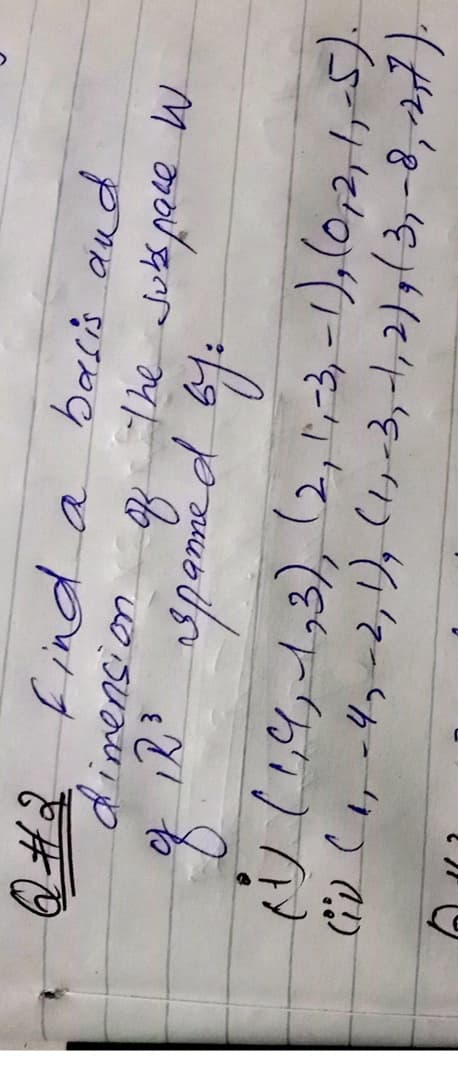 Q#2 Find a basis and
dimension of the subspace W
of ℝ³ spanned by:
(i) (1,4,-1,3), (2,1,-3,-1), (0,2,1,-5).
(ii) (1,-4,-2,1), (1,-3,-1,2), (3,-8,-2,7).